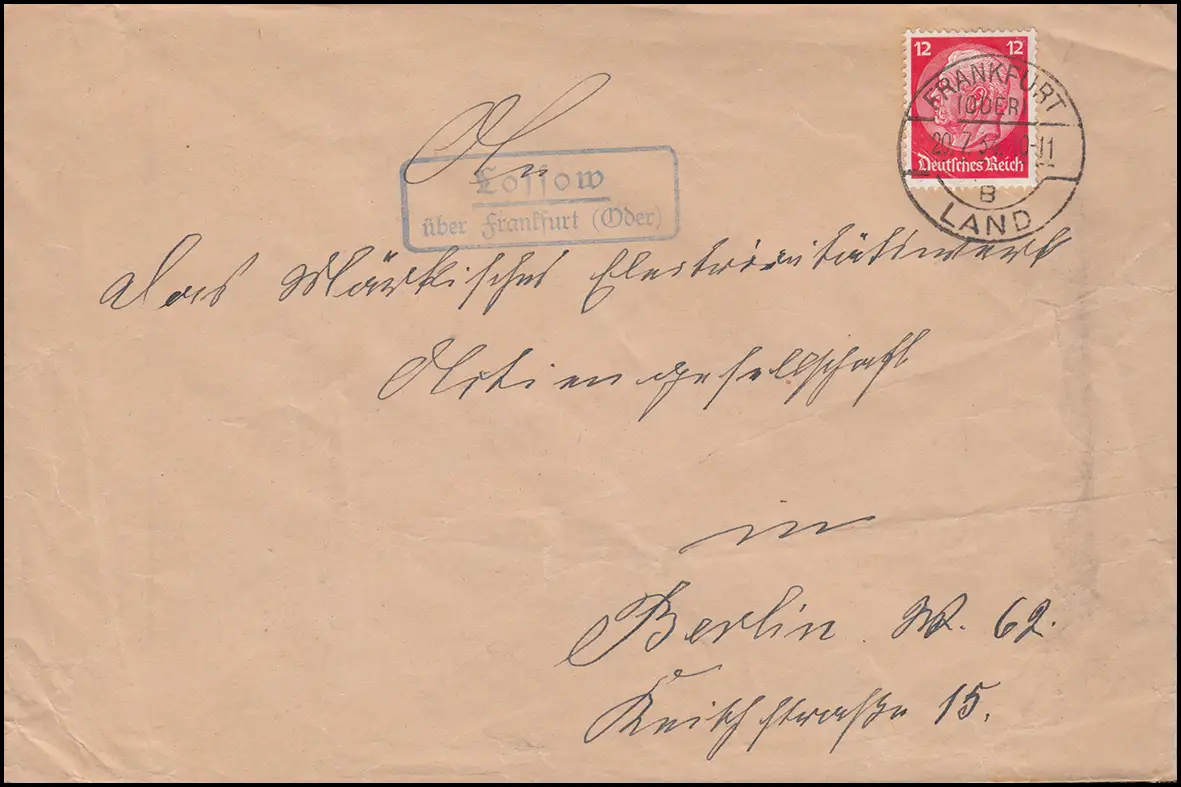 12 12
Deutsches Reich
FRANKFURT
(ODER)
10-11
B
LAND
An
Lossow
über Frankfurt (Oder)
das Märkisches Electricitätswerk
Aktiengesellschaft
in
Berlin W. 62.
Keithstraße 15.